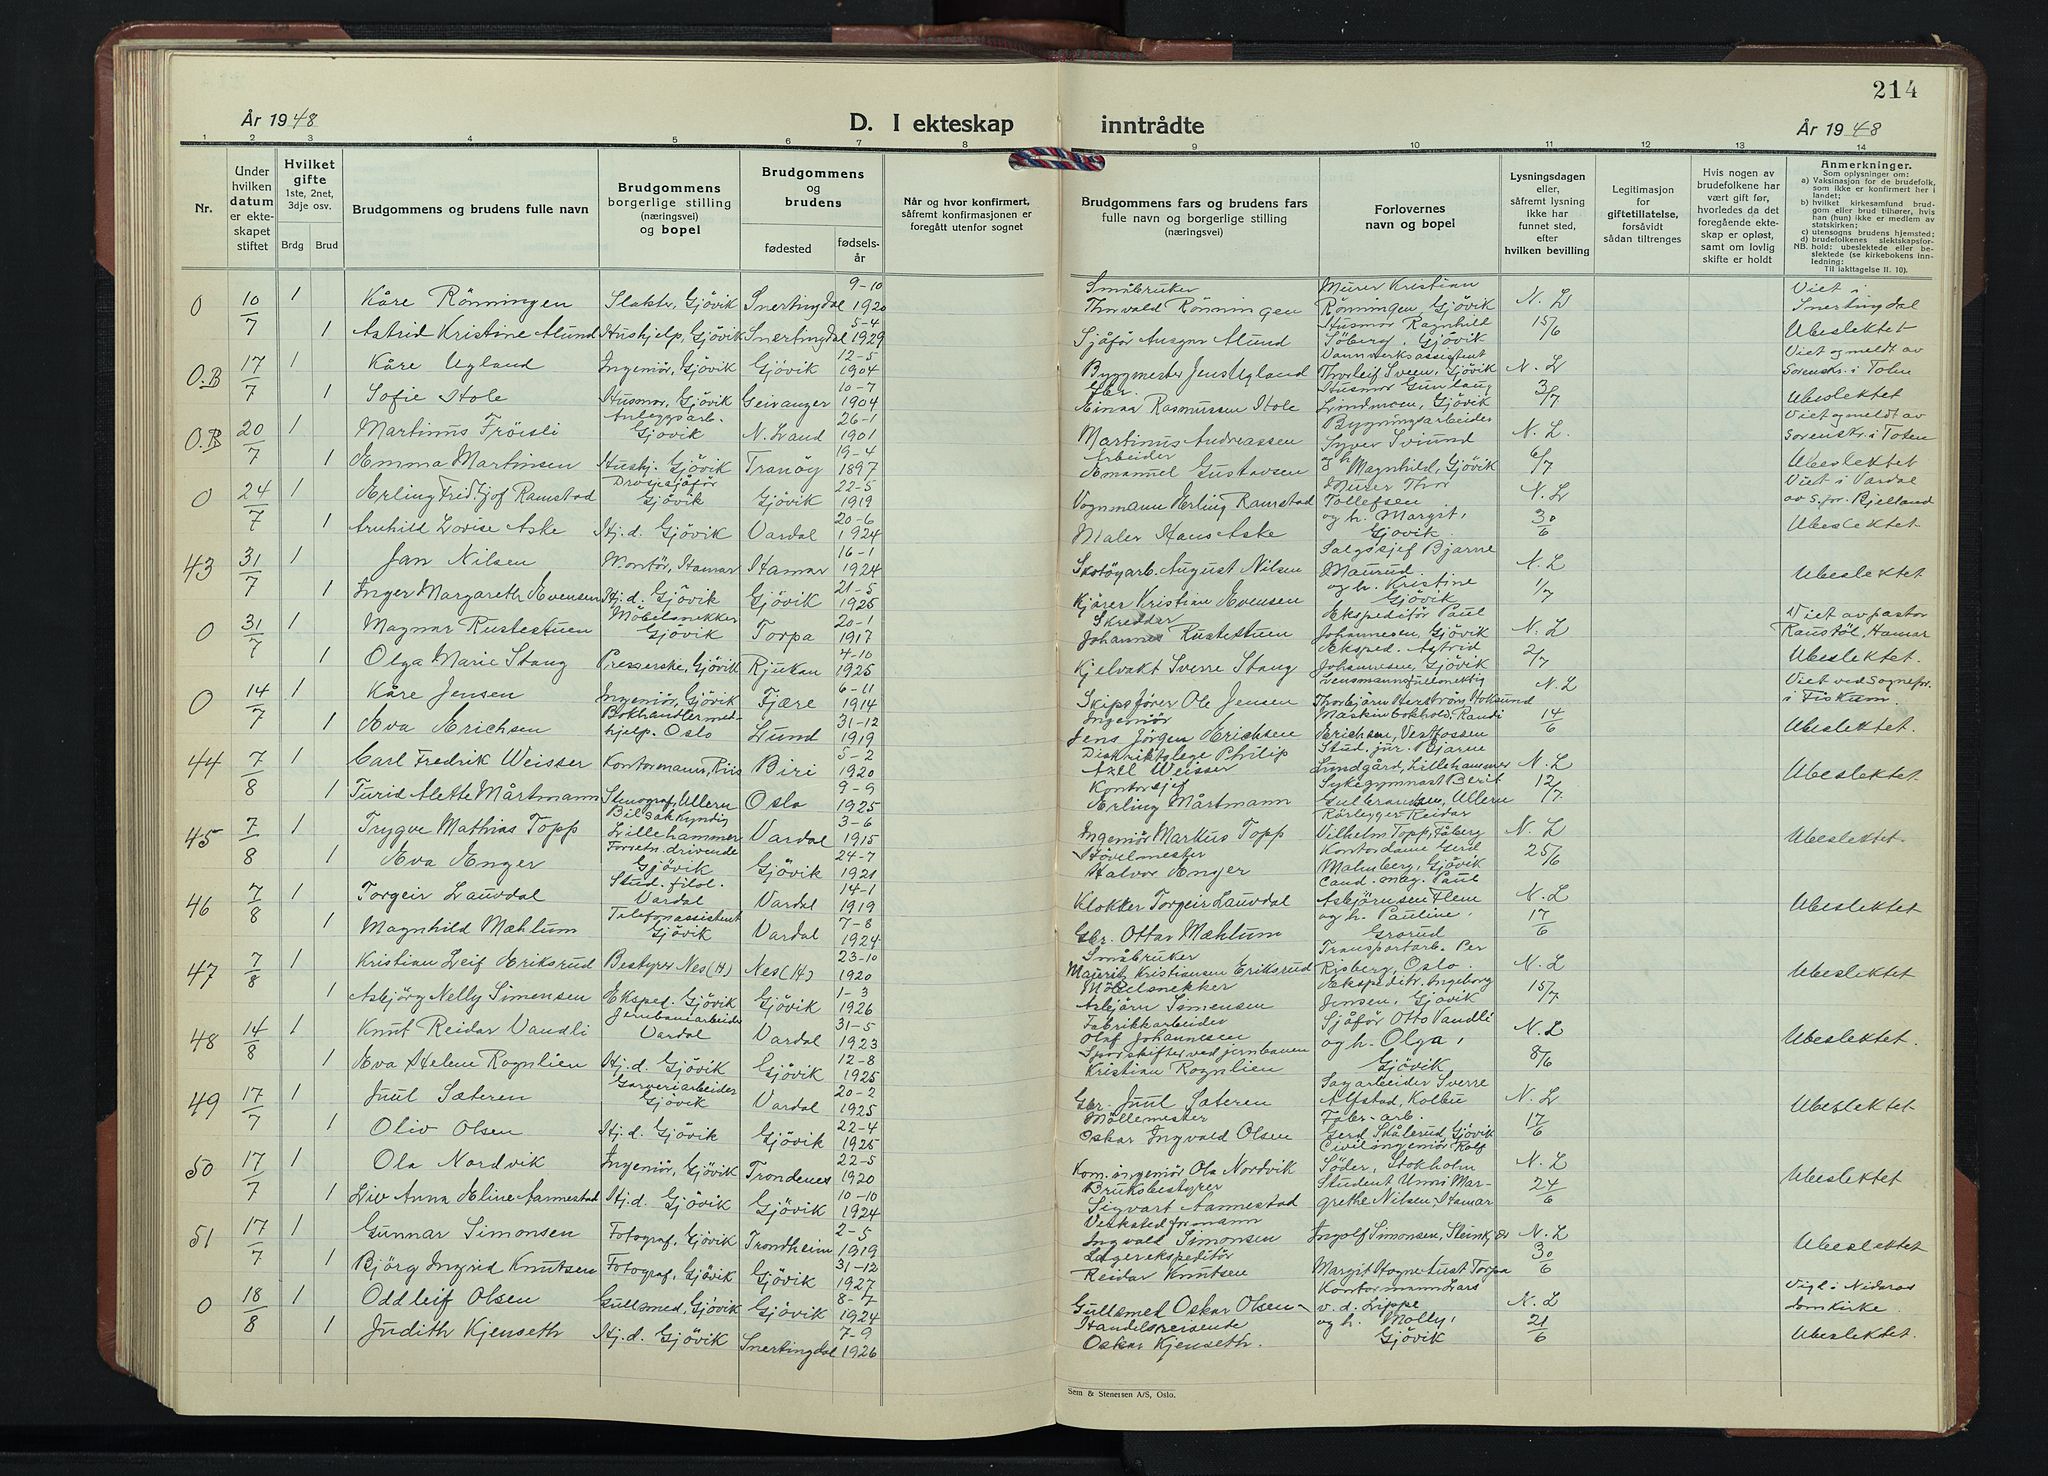 214
År 1948
D. I ekteskap inntrådte
År 1948
1 2 3 4 5 6 7 8 9 10 11 12 13 14
Nr.
Under hvilken datum er ekteskapet stiftet
Hvilket gifte 1ste, 2net, 3dje osv.
Brdg Brud
Brudgommens og brudens fulle navn
Brudgommens borgerlige stilling (næringsvei) og bopel
Brudgommens og brudens
fødested fødselsår
Når og hvor konfirmert, såfremt konfirmasjonen er foregått utenfor sognet
Brudgommens fars og brudens fars fulle navn og borgerlige stilling (næringsvei)
Forlovernes navn og bopel
Lysningsdagen eller, såfremt lysning ikke har funnet sted, efter hvilken bevilling
Legitimasjon for giftetillatelse, forsåvidt sådan tiltrenges
Hvis nogen av brudefolkene har vært gift før, hvorledes da det foregående ekteskap er opløst, samt om lovlig skifte er holdt
Anmerkninger.
Som oplysninger om:
a) Vaksinasjon for de brudefolk, som ikke er konfirmert her i landet;
b) hvilket kirkesamfund brudgom eller brud tilhører, hvis han (hun) ikke er medlem av statskirken;
c) utensogns brudens hjemsted;
d) brudefolkenes slektskapsforhold: ubeslektede eller beslektede (se kirkebokens innledning:
NB.
Til iakttagelse II. 10).
0 10/7 1 Kåre Rönningen Slakter, Gjövik Snertingdal 9-10 1920 Småbruker Thorvald Rönningen Murer Kristian Rönningen, Gjövik N. L Viet i Snertingdal
1 Astrid Kristine Alund Hushjelp, Gjövik Snertingdal 5-4 1929 Sjåför Ansgar Alund Husmor Ragnhild Söberg, Gjövik 15/6 Ubeslektet
O.B 17/7 1 Kåre Ugland Ingeniör, Gjövik Gjövik 12-5 1904 Byggmester Jens Ugland Vannverksassistent Thorleif Sveen, Gjövik N. L Viet og meldt av Sorenskr. i Toten
1 Sofie Hole Husmor, Gjövik Geiranger 10-7 1904 Gbr. Einar Rasmussen Hole Husmor Gunlaug Lindmoen, Gjövik 3/7 Ubeslektet
O.B 20/7 1 Martinus Fröisli Anleggsarb. Gjövik N. Land 26-1 1901 Martinus Andreassen Bygningsarbeider Syver Sviund N. L. Viet og meldt av Sorenskr. i Toten
1 Emma Martinsen Hushj. Gjövik Tranöy 19-4 1897 Arbeider Emanuel Gustavsen og h. Magnhild, Gjövik 6/7 Ubeslektet
0 24/7 1 Erling Fredtjof Ramstad Drosjesjåför Gjövik Gjövik 22-5 1919 Vognmann Erling Ramstad Murer Thor Tollefsen N. L Viet i Vardal av s.pr. Bjelland
1 Arnhild Lovise Aske Hj. d. Gjövik Vardal 20-6 1924 Maler Hans Aske og h. Margit, Gjövik 30/6 Ubeslektet
43 31/7 1 Jan Nilsen Montör, Hamar Hamar 16-1 1924 Skotöyarb. August Nilsen Salgssjef Bjarne Maurud N. L Ubeslektet
1 Inger Margareth Evensen Hj. d. Gjövik Gjövik 21-5 1925 Kjörer Kristian Evensen og h. Kristine Gjövik 1/7
0 31/7 1 Magnar Rustestuen Möbelsnekker Gjövik Torpa 20-1 1917 Skredder Johannes Rustestuen Ekspeditör Paul Johannesen, Gjövik N. L Viet av pastor Ramstöl, Hamar
1 Olga Marie Stang Presserske, Gjövik Rjukan 4-10 1925 Kjelvakt Sverre Stang Eksped. Astrid Johannesen, Gjövik 2/7 Ubeslektet.
0 14/7 1 Kåre Jensen Ingeniör, Gjövik Fjære 6-11 1914 Skipsförer Ole Jensen Lensmannsfullmektig Thorbjörn Herström, Hoksund N. L Viet ved Sognepr. i Fiskum
1 Eva Erichsen Bokhandlermedhjelp. Oslo Lund 31-12 1919 Ingeniör Jens Jörgen Erichsen Maskinbokhold. Randi Erichsen, Vestfossen 14/6 Ubeslektet.
44 7/8 1 Carl Fredrik Weisser Kontormann, Riis Biri 5-2 1920 Distriktslege Philip Axel Weisser Stud. jur. Bjarne Lundgård, Lillehammer N. L Ubeslektet
1 Turid Alette Mårtmann Stenograf, Ullern Oslo 9-9 1925 Kontorsjef Erling Mårtmann Sykegymnast Berit Gulbrandsen, Ullern 12/7
45 7/8 1 Trygve Mathias Topp Bilsakkyndig Lillehammer Vardal 3-6 1915 Ingeniör Markus Topp Rörlegger Reidar Vilhelm Topp, Fåberg N. L Ubeslektet
1 Eva Enger Forretn. drivende Gjövik Gjövik 24-7 1921 Hövelmester Halvor Enger Kontordame Gerd Malmberg, Gjövik 25/6
46 7/8 1 Torgeir Lauvdal Stud. filol. Vardal Vardal 14-1 1919 Klokker Torgeir Lauvdal Cand. mag. Paul Asbjörnsen Flem N. L Ubeslektet
1 Magnhild Mæhlum Telefonassistent Gjövik Vardal 7-8 1924 Gbr. Ottar Mæhlum og h. Pauline, Grorud 17/6
47 7/8 1 Kristian Leif Eriksrud Bestyrer Nes (H) Nes (H) 23-10 1920 Småbruker Mauritz Kristiansen Eriksrud Transportarb. Per Risberg, Oslo. N. L Ubeslektet
1 Asbjörg Nelly Simensen Eksped. Gjövik Gjövik 1-3 1926 Möbelsnekker Asbjörn Simensen Ekspeditr. Ingeborg Jensen, Gjövik 15/7
48 14/8 1 Knut Reidar Vandli Jernbanearbeider Vardal Vardal 31-5 1923 Fabrikkarbeider Olaf Johannesen Sjåför Otto Vandli N. L Ubeslektet.
1 Eva Helene Rognlien Hj. d. Gjövik Gjövik 12-8 1925 Sporskifter ved jernbanen Kristian Rognlien og h. Olga, Gjövik 8/6
49 17/7 1 Juul Sæteren Garveriarbeider Gjövik Vardal 20-2 1925 Gbr. Juul Sæteren Sagarbeider Sverre Alfstad, Kolbu N. L Ubeslektet
1 Oliv Olsen Hj. d. Gjövik Gjövik 22-4 1925 Möllemester Oskar Ingvald Olsen Fabr. arb. Gerd Skålerud, Gjövik 17/6
50 17/7 1 Ola Nordvik Ingeniör, Gjövik Trondenes 22-5 1920 Kom. ingeniör Ola Nordvik Civilingeniör Rolf Söder, Stokholm N. L Ubeslektet
1 Liv Anna Eline Aannestad Hj. d. Gjövik Gjövik 10-10 1924 Bruksbestyrer Sigvart Aannestad Student Unni Margrethe Nilsen, Hamar 24/6
51 17/7 1 Gunnar Simonsen Fotograf, Gjövik Trondheim 2-5 1919 Verkstedformann Ingvald Simonsen Ingolf Simonsen, Steinkjer N. L Ubeslektet
1 Björg Ingrid Knutsen Fotograf, Gjövik Gjövik 31-12 1927 Lagerekspeditör Reidar Knutsen Margit Hognelust Torpa 30/6
0 18/8 1 Odd Leif Olsen Gullsmed, Gjövik Gjövik 8-7 1924 Gullsmed Oskar Olsen Kontormann Lars v. d. Lippe N. L Vigl i Nidaros domkirke.
1 Judith Kjenseth Hj. d. Gjövik Snertingdal 7-9 1926 Handelsreisende Oskar Kjenseth. og h. Molly, Gjövik 21/6 Ubeslektet.
Sem & Stenersen A/S, Oslo.